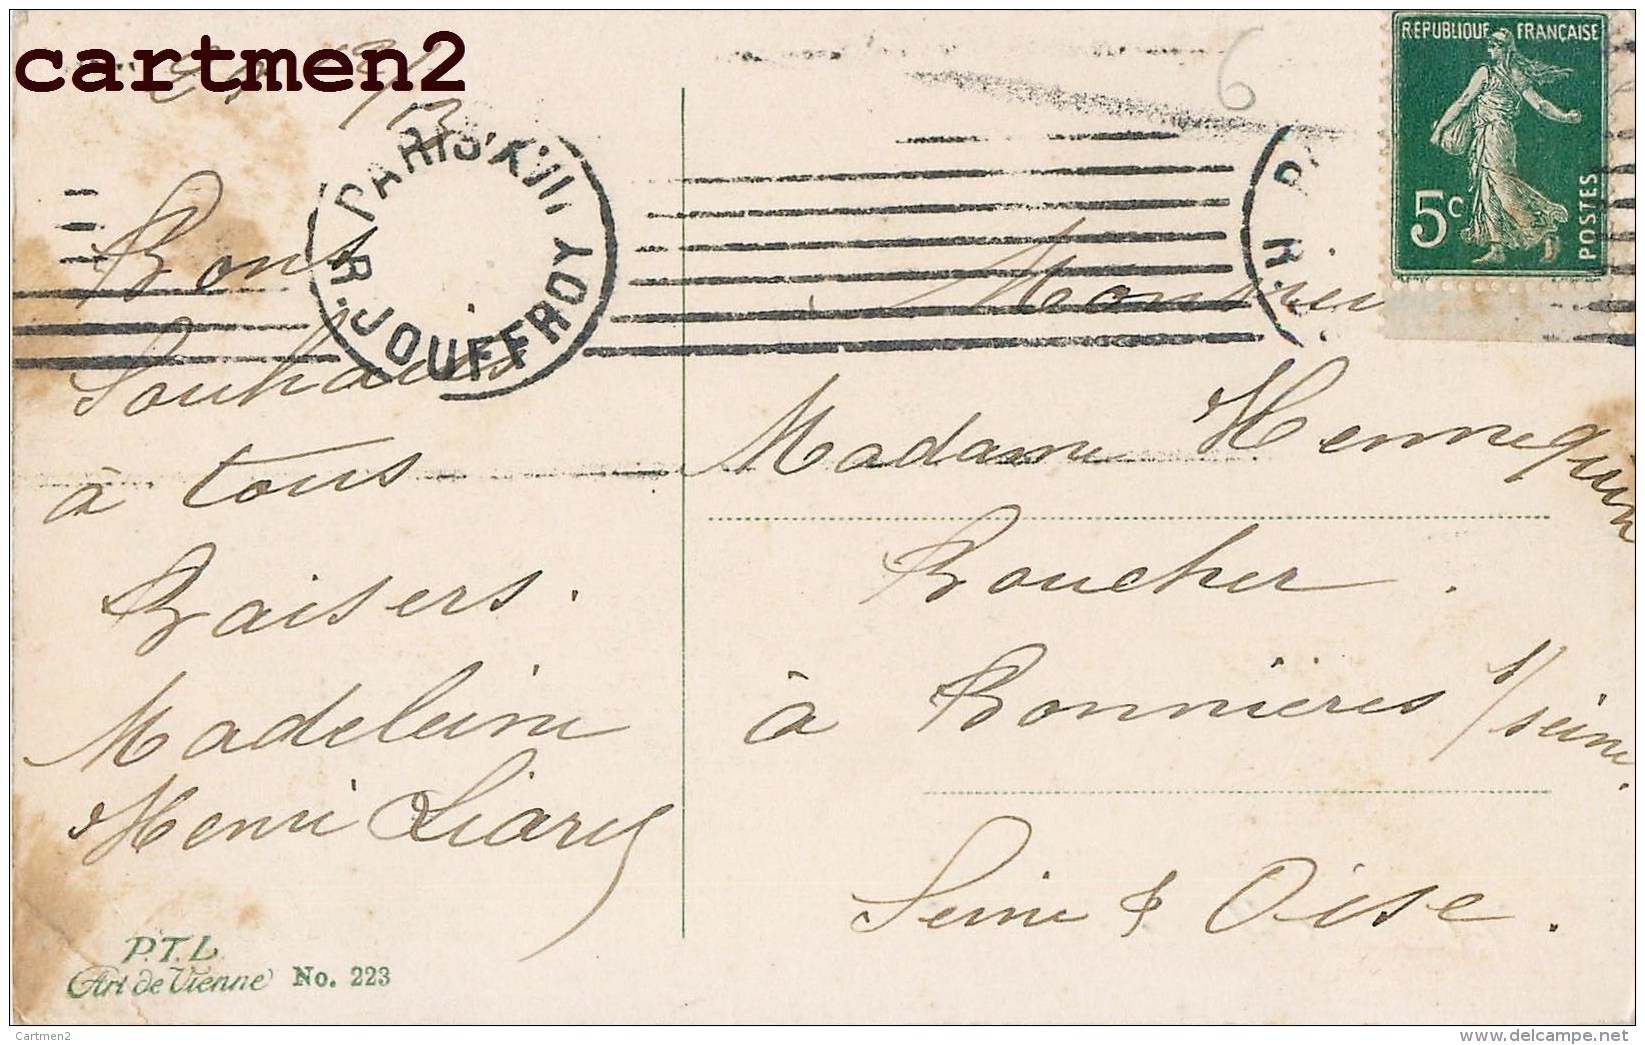 cartmen2
REPUBLIQUE FRANÇAISE
5c
POSTES
PARIS XVII
R. JOUFFROY
6
Bons
Souhaits
à tous
Baisers.
Madeleine
Henri
Monsieur
Madame Hennequin
Boucher.
à Bonnières s/seine.
Seine & Oise.
P.T.L.
Art de Vienne No. 223
Cartmen2
www.delcampe.net